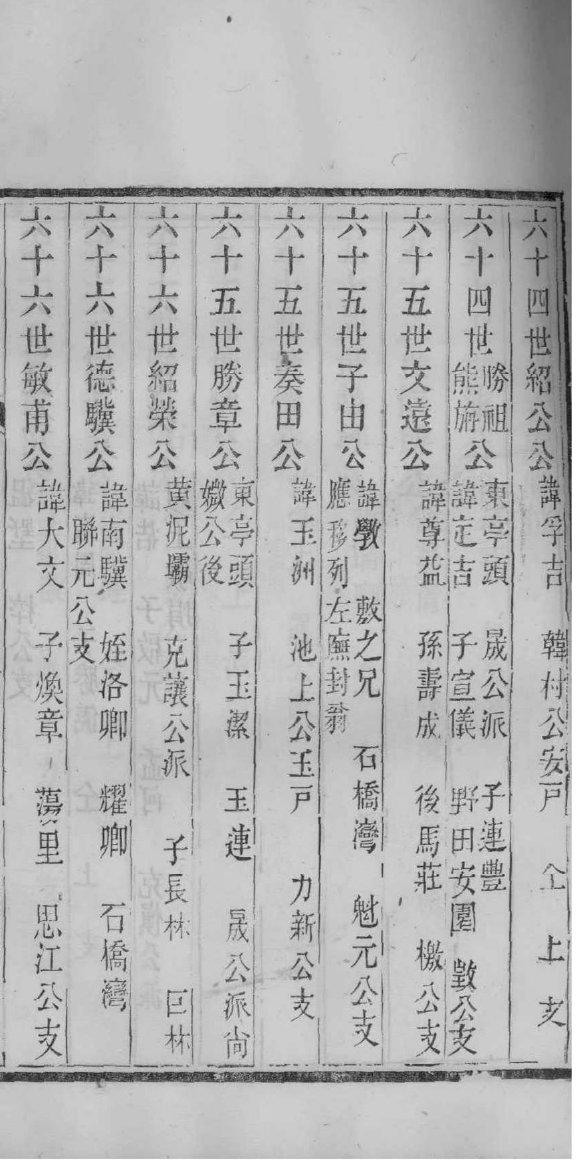 六十四世紹公公 諱孚吉 韓村公安戸 仝上支
六十四世勝祖熊旂公 東亭頭 晟公派 子連豐
諱定吉 子宣儀 野田安圍 數公支
六十五世文遠公 諱尊益 孫壽成 後馬莊 檄公支
六十五世子由公 諱斆 敷之兄 石橋灣 魁元公支
應移列左廡封翁
六十五世奏田公 諱玉洲 池上公玉戸 力新公支
六十五世勝章公 東亭頭 子玉潔 玉連 晟公派尙
嫩公後
六十六世紹榮公 黃泥壩 克讓公派 子長林 巨林
六十六世德驥公 諱南驥 姪洛卿 耀卿 石橋灣
聯元公支
六十六世敏甫公 諱大文 子煥章 蕩里 思江公支